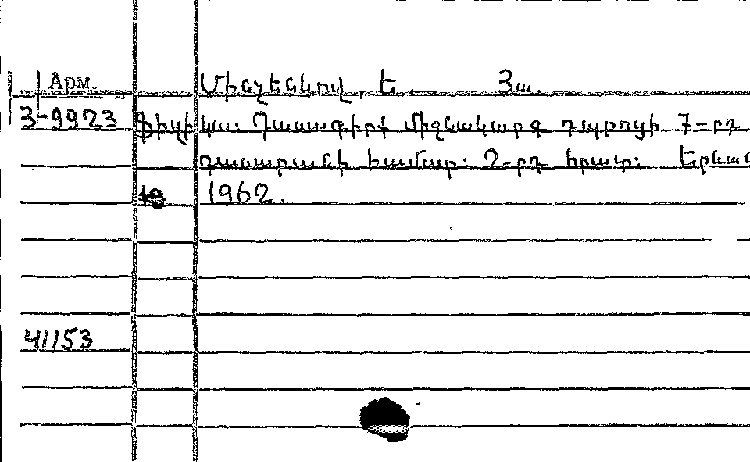 Арм.
Մինչենկով, Ե. — Յա.
3-9923 Ֆիզիկա: Դասագիրք միջնակարգ դպրոցի 7-րդ
դասարանի համար: 2-րդ հրատ: Երևան
1962.
41153